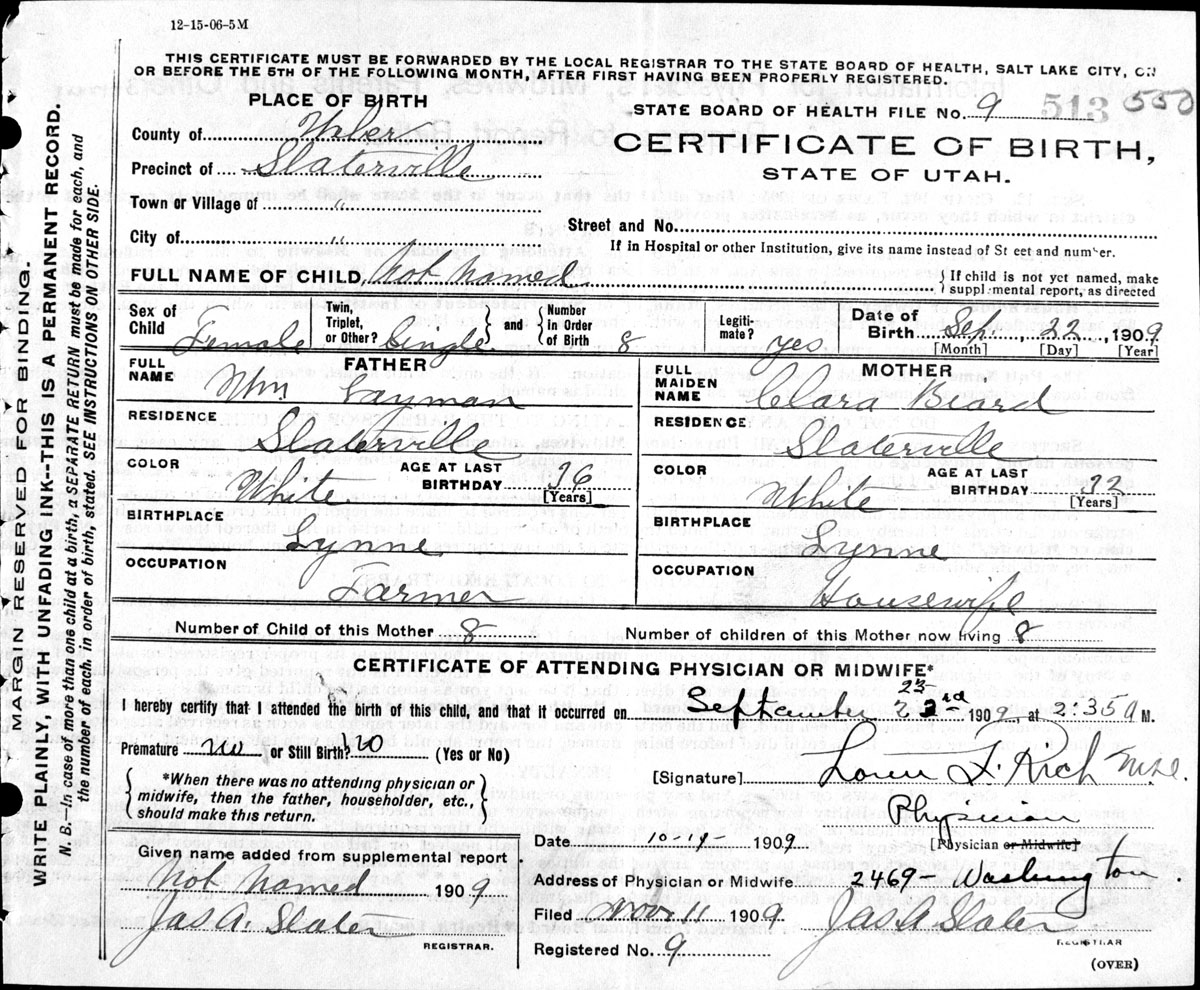 12-15-06-5M
THIS CERTIFICATE MUST BE FORWARDED BY THE LOCAL REGISTRAR TO THE STATE BOARD OF HEALTH, SALT LAKE CITY, ON
OR BEFORE THE 5TH OF THE FOLLOWING MONTH, AFTER FIRST HAVING BEEN PROPERLY REGISTERED.
MARGIN RESERVED FOR BINDING.
WRITE PLAINLY, WITH UNFADING INK--THIS IS A PERMANENT RECORD.
N. B.—In case of more than one child at a birth, a SEPARATE RETURN must be made for each, and
the number of each, in order of birth, stated. SEE INSTRUCTIONS ON OTHER SIDE.
PLACE OF BIRTH
STATE BOARD OF HEALTH FILE No. 9 513 550
County of Weber
CERTIFICATE OF BIRTH,
STATE OF UTAH.
Precinct of Slaterville
Town or Village of "
City of "
Street and No.
If in Hospital or other Institution, give its name instead of St eet and number.
FULL NAME OF CHILD Not Named
{ If child is not yet named, make
suppl mental report, as directed
Sex of Child Female
Twin, Triplet, or Other? Cingle
and
Number in Order of Birth 8
Legitimate? yes
Date of Birth Sep. 22, 1909
[Month] [Day] [Year]
FATHER
FULL NAME Wm Layman
RESIDENCE Slaterville
COLOR White
AGE AT LAST BIRTHDAY 36 [Years]
BIRTHPLACE Lynne
OCCUPATION Farmer
MOTHER
FULL MAIDEN NAME Clara Beard
RESIDENCE Slaterville
COLOR White
AGE AT LAST BIRTHDAY 32 [Years]
BIRTHPLACE Lynne
OCCUPATION Housewife
Number of Child of this Mother 8 Number of children of this Mother now living 8
CERTIFICATE OF ATTENDING PHYSICIAN OR MIDWIFE*
I hereby certify that I attended the birth of this child, and that it occurred on September 22nd 1909, at 2:35 a M.
Premature no or Still Birth? no (Yes or No)
*When there was no attending physician or
midwife, then the father, householder, etc.,
should make this return.
[Signature] Rich
Physician
[Physician or Midwife]
Date 1909
Given name added from supplemental report
Not Named 1909
Jas A. Slater
REGISTRAR.
Address of Physician or Midwife 2469- Washington.
Filed Nov 11 1909 Jas A Slater
REGISTRAR
Registered No. 9
(OVER)